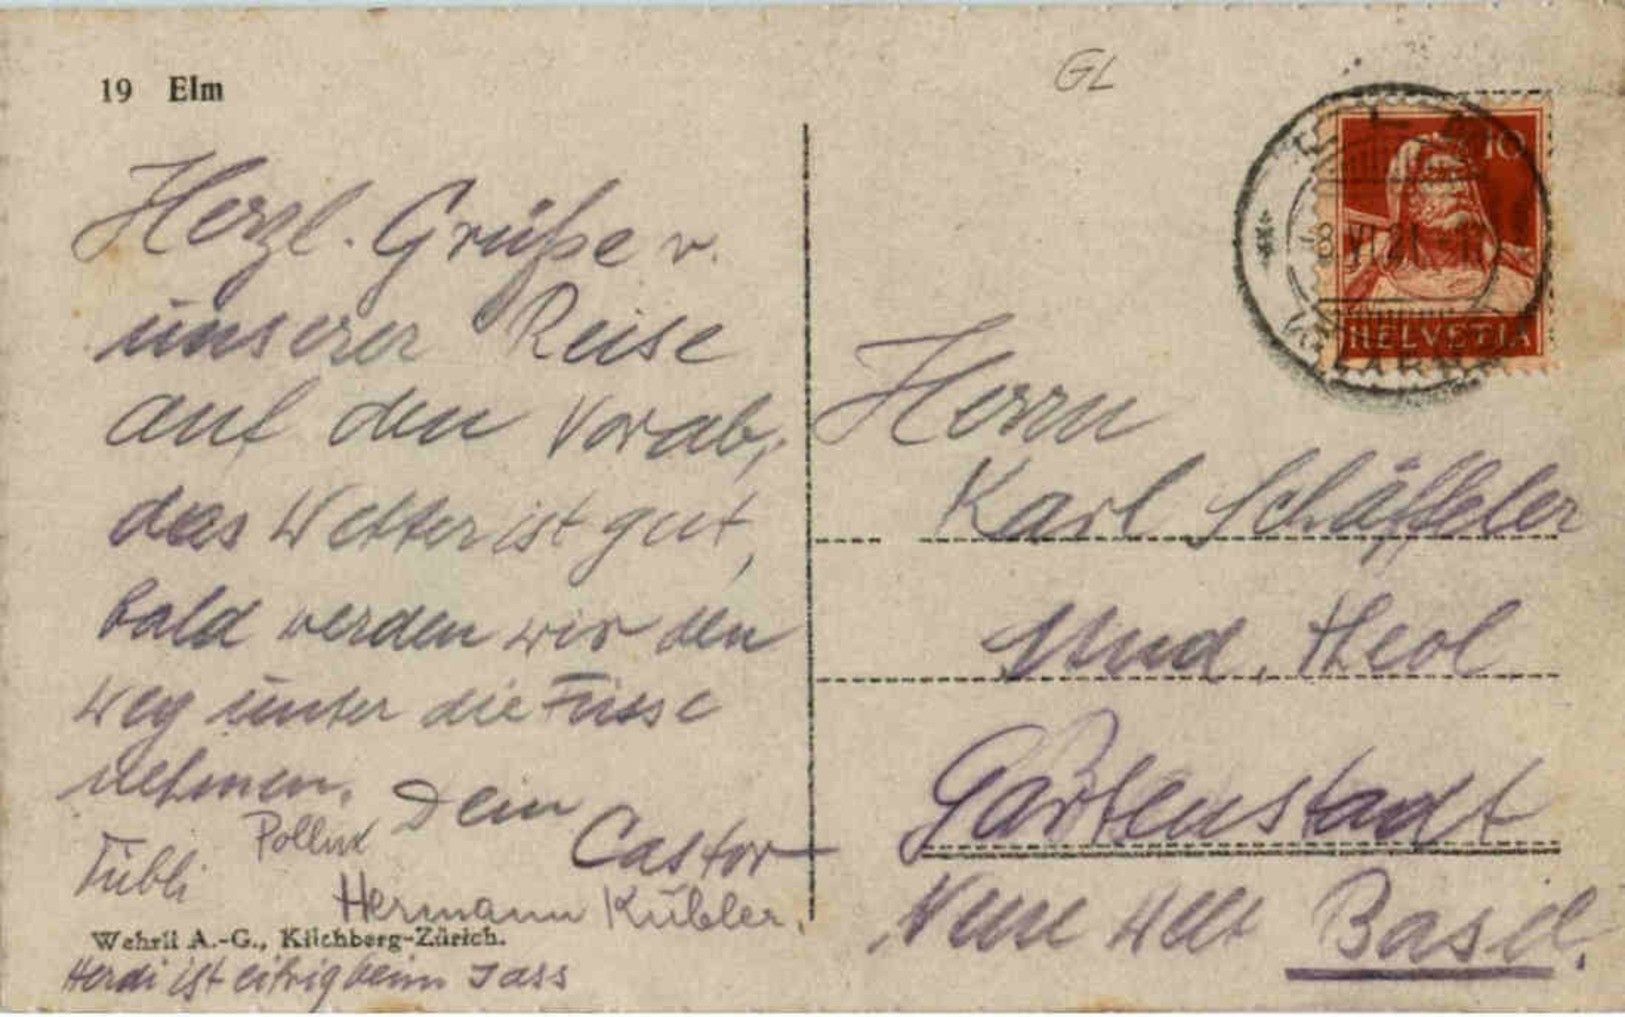 19 Elm
GL
Herzl. Grüße v.
unserer Reise
auf den Vorab,
das Wetter ist gut,
bald werden wir den
Weg unter die Füsse
nehmen. Dein
Castor
Pollux
Tübli
Hermann Kübler.
Wehrli A.-G., Kilchberg-Zürich.
Herdi ist eifrig beim Jass
10
8 VI 21
HELVETIA
Herrn
Karl Schäffeler
stud. theol
Gartenstadt
Neue Welt Basel.